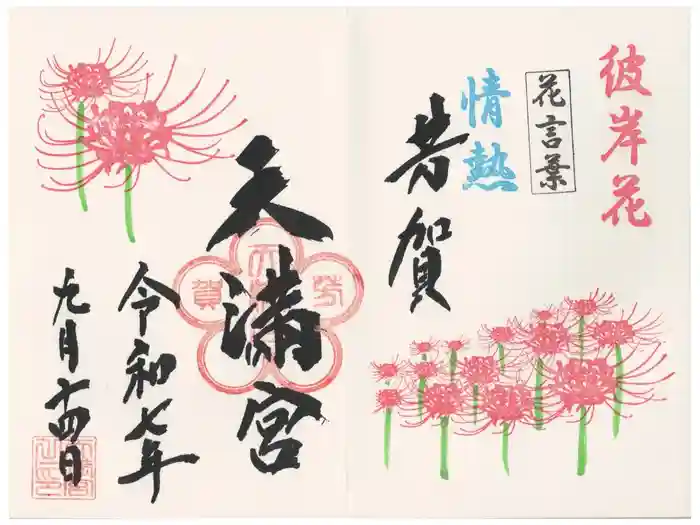 彼岸花
花言葉
情熱
芳賀
天満宮
令和七年
九月十四日
芳
賀
天